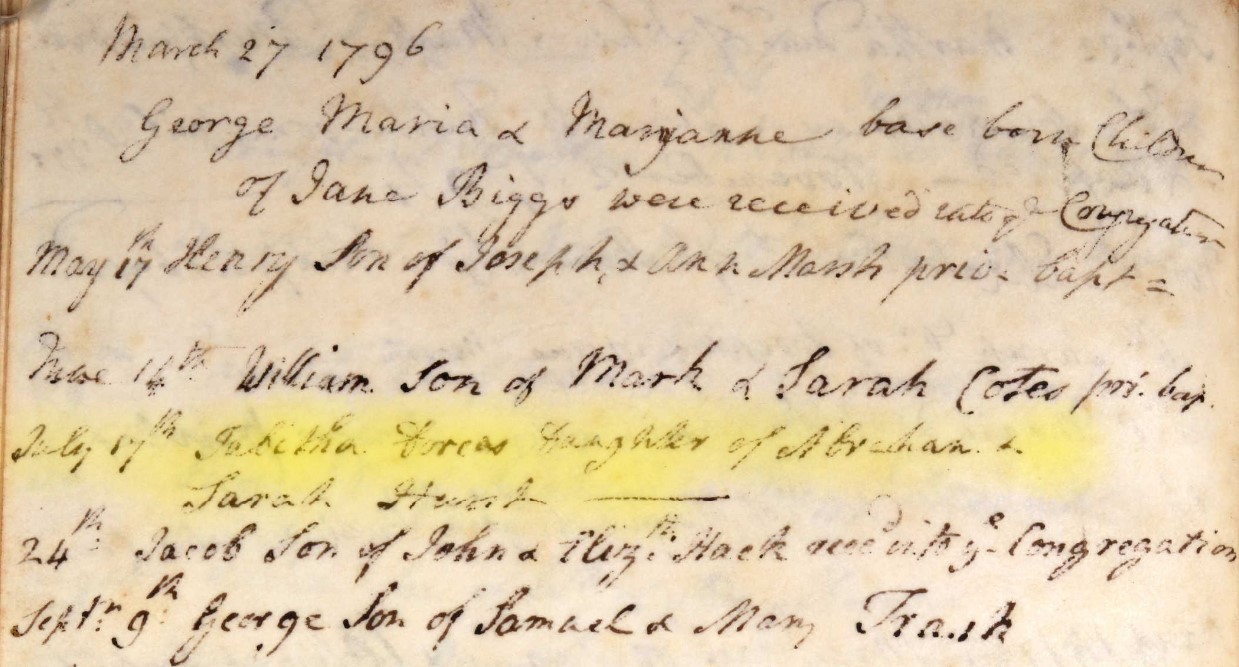 March 27 1796
George Maria & Maryanne base born Children
of Jane Biggs were received into ye Congregation
May 17th Henry Son of Joseph & Ann Marsh priv. bapt=
June 16th William Son of Mark & Sarah Cotes pri. bap.
July 17th Tabitha Dorcas Daughter of Abraham &
Sarah Hunt
24th Jacob Son of John & Elizth Hack recd into ye Congregation
Septr 9th George Son of Samuel & Mary